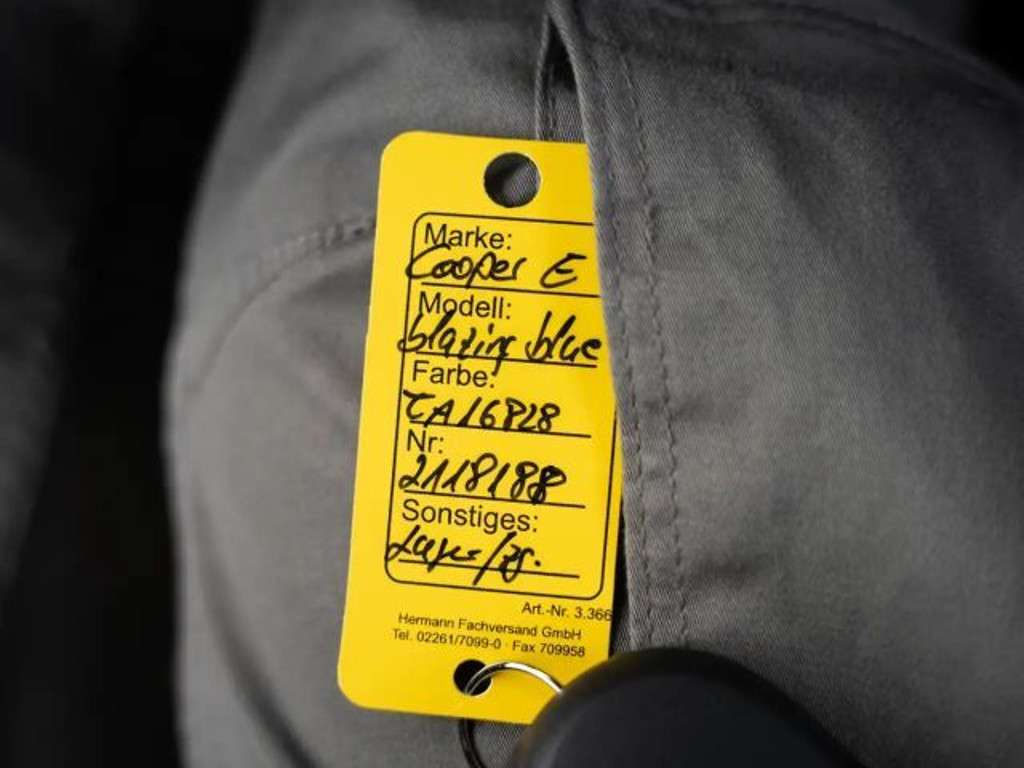 Marke:
Cooper E
Modell:
blazing blue
Farbe:
CA16828
Nr:
2118188
Sonstiges:
Lager/zg.
Art.-Nr. 3.366
Hermann Fachversand GmbH
Tel. 02261/7099-0 · Fax 709958